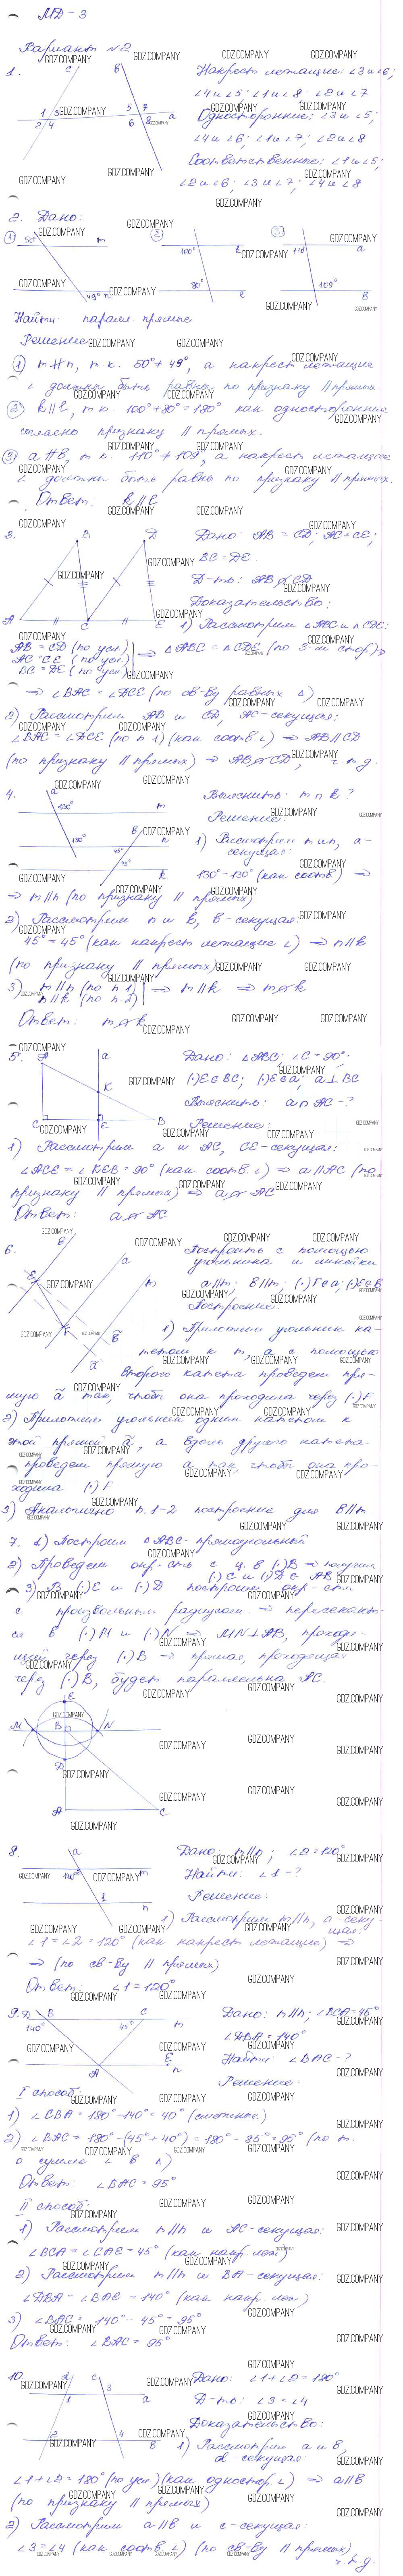 МД-3
Вариант №2
1.
Накрест лежащие: ∠3 и ∠6;
∠4 и ∠5; ∠1 и ∠8; ∠2 и ∠7
Односторонние: ∠3 и ∠5;
∠4 и ∠6; ∠1 и ∠7; ∠2 и ∠8
Соответственные: ∠1 и ∠5;
∠2 и ∠6; ∠3 и ∠7; ∠4 и ∠8
2. Дано:
Найти: паралл. прямые
Решение:
① m∦n, т.к. 50°≠49°, а накрест лежащие
∠ должны быть равны по признаку || прямых.
② k||l, т.к. 100°+80°=180° как односторонние
согласно признаку || прямых.
③ a∦b, т.к. 110°≠109°, а накрест лежащие
∠ должны быть равны по признаку || прямых.
Ответ: k||l
3.
Дано: AB = CD; AC = CE;
BC = DE.
Д-ть: AB ∦ CD
Доказательство:
1) Рассмотрим △ABC и △CDE:
AB = CD (по усл)
AC = CE (по усл)
BC = DE (по усл)
⇒ △ABC = △CDE (по 3-м стор) ⇒
⇒ ∠BAC = ∠DCE (по св-ву равных △)
2) Рассмотрим AB и CD, AC-секущая:
∠BAC = ∠DCE (по п 1) (как соотв. ∠) ⇒ AB||CD
(по признаку || прямых) ⇒ AB ∦ CD, ч.т.д.
4.
Выяснить: m ∩ k ?
Решение:
1) Рассмотрим m и n, a-
секущая:
130°=130° (как соотв) ⇒
⇒ m||n (по признаку || прямых)
2) Рассмотрим n и k, b-секущая:
45° = 45° (как накрест лежащие ∠) ⇒ n||k
(по признаку || прямых)
3) m||n (по п 1)
n||k (по п. 2)
⇒ m||k
Ответ:
5.
Дано: △ABC; ∠C = 90°;
(·)E∈BC; (·)E∈a; a⊥BC
Выяснить: a ∩ AC - ?
Решение:
1) Рассмотрим a и AC, CE-секущая:
∠ACE = ∠KEB = 90° (как соотв. ∠) ⇒ a||AC (по
признаку || прямых)
Ответ:
6.
Построить с помощью
угольника и линейки
a||m; b||m; (·)F∈a; (·)E∈b
Построение:
1) Приложим угольник ка-
тетом к m, а с помощью
второго катета проведем пря-
мую ã так, чтобы она проходила через (·)F
2) Приложим угольник одним катетом к
этой прямой ã, а вдоль другого катета
проведем прямую a так, чтобы она про-
ходила (·) F
3) Аналогично п. 1-2 построение для b||m.
7. 1) Построим △ABC - прямоугольный
2) Проведем окр-сть с ц. в (·)B ⇒ получим
(·)E и (·)D ∈ AB
3) В (·)E и (·)D построим окр-сти
с произвольным радиусом ⇒ пересекают-
ся в (·)M и (·)N ⇒ MN⊥AB, проходя-
щий через (·)B ⇒ прямая, проходящая
через (·)B, будет параллельна AC.
8.
Дано: m||n; ∠2=120°
Найти: ∠1-?
Решение:
1) Рассмотрим m||n, a-секу-
щая:
∠1=∠2=120° (как накрест лежащие) ⇒
⇒ (по св-ву || прямых)
Ответ: ∠1=120°
9.
Дано: m||n; ∠BCA=45°
∠DBA=140°
Найти: ∠BAC-?
Решение:
I способ:
1) ∠CBA = 180°-140°=40° (смежные)
2) ∠BAC = 180°-(45°+40°) = 180°-85°=95° (по т.
о сумме ∠ в △)
Ответ: ∠BAC = 95°
II способ:
1) Рассмотрим m||n и AC-секущая:
∠BCA=∠CAE = 45° (как накр. леж)
2) Рассмотрим m||n и BA-секущая:
∠DBA=∠BAE = 140° (как накр. леж)
3) ∠BAC = 140°-45°=95°
Ответ: ∠BAC = 95°
10.
Дано: ∠1+∠2=180°
Д-ть: ∠3=∠4
Доказательство:
1) Рассмотрим a и b,
d-секущая:
∠1+∠2=180° (по усл) (как одностор. ∠) ⇒ a||b
(по признаку || прямых)
2) Рассмотрим a||b и c-секущая:
∠3=∠4 (как соотв. ∠) (по св-ву || прямых)
ч.т.д.
GDZ.COMPANY